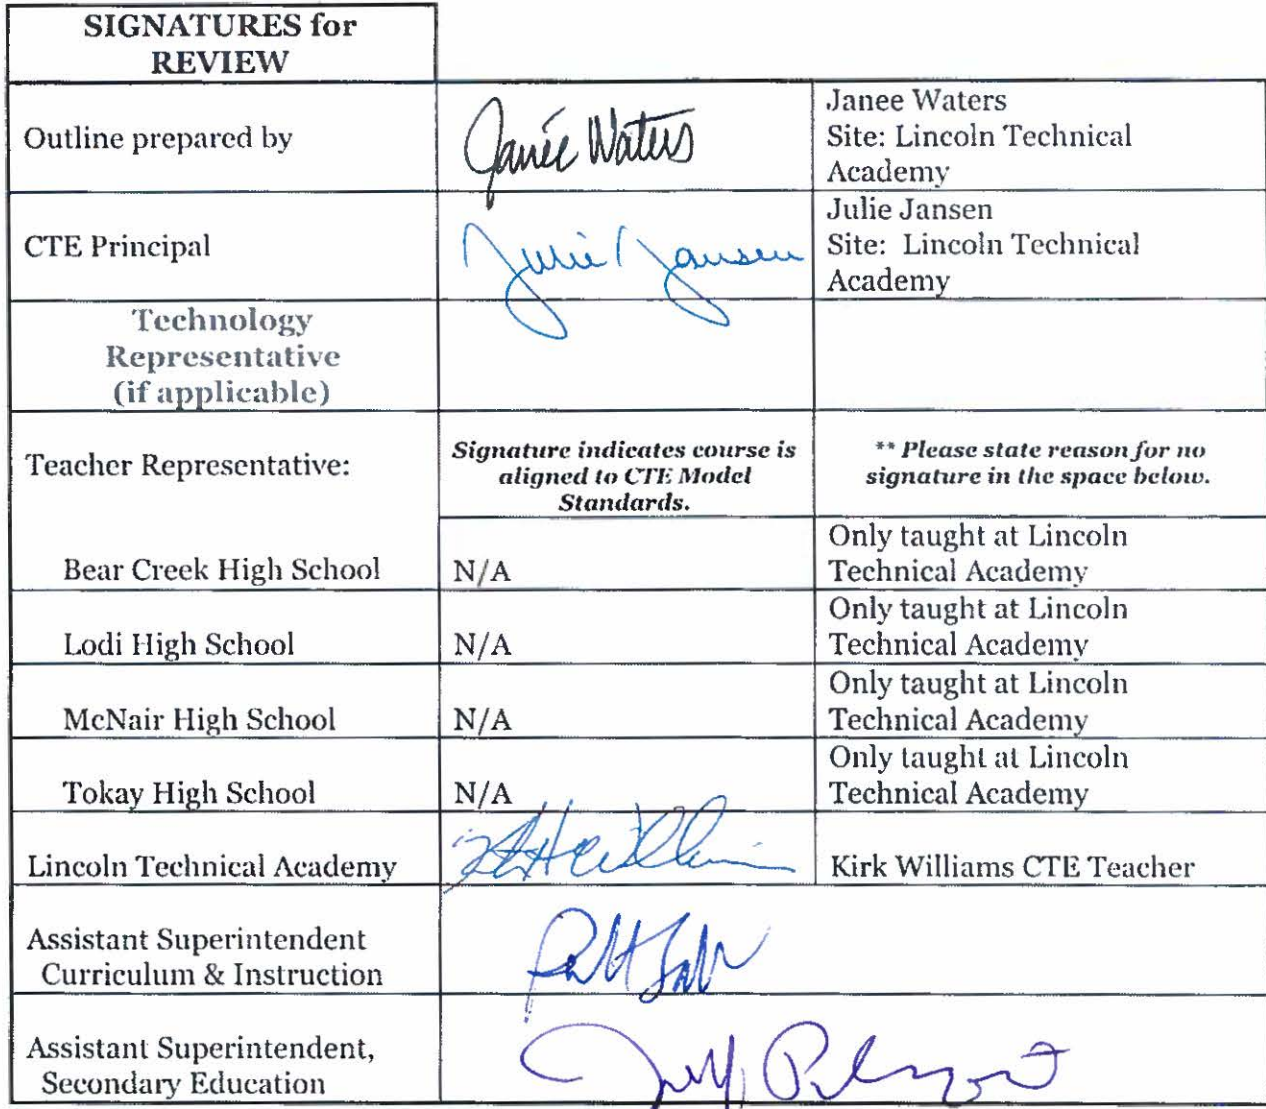 SIGNATURES for
REVIEW
Outline prepared by
Janée Waters
Janee Waters
Site: Lincoln Technical
Academy
CTE Principal
Julie Jansen
Julie Jansen
Site: Lincoln Technical
Academy
Technology
Representative
(if applicable)
Teacher Representative:
Signature indicates course is
aligned to CTE Model
Standards.
** Please state reason for no
signature in the space below.
Bear Creek High School
N/A
Only taught at Lincoln
Technical Academy
Lodi High School
N/A
Only taught at Lincoln
Technical Academy
McNair High School
N/A
Only taught at Lincoln
Technical Academy
Tokay High School
N/A
Only taught at Lincoln
Technical Academy
Lincoln Technical Academy
Kirk Williams CTE Teacher
Assistant Superintendent
Curriculum & Instruction
Assistant Superintendent,
Secondary Education